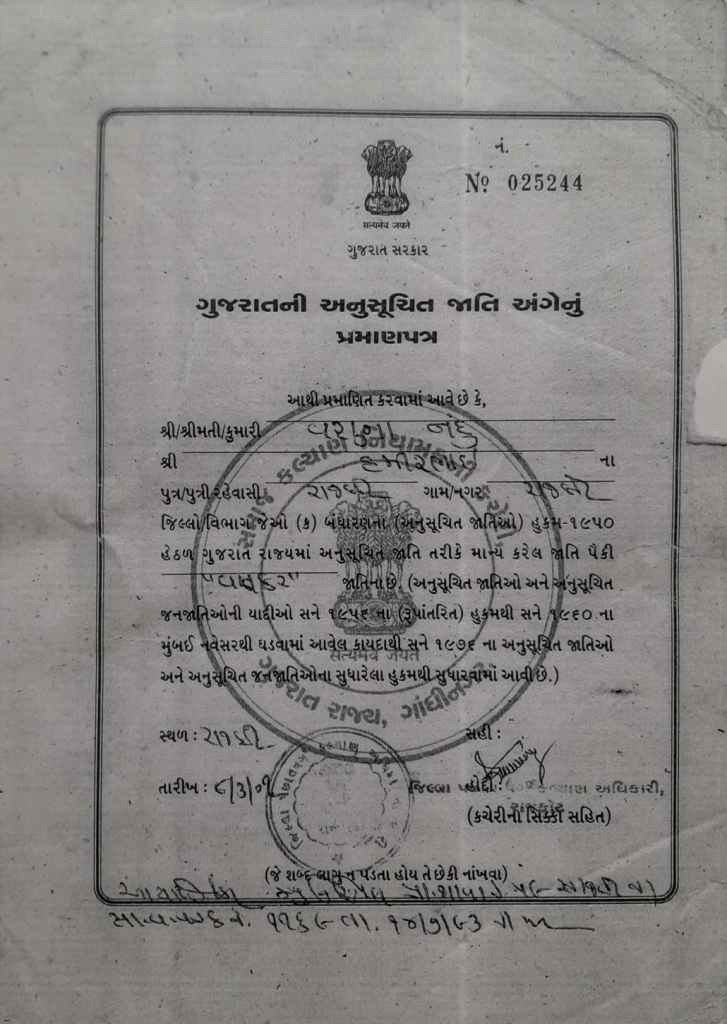 નં.
Nº 025244
सत्यमेव जयते
ગુજરાત સરકાર
ગુજરાતની અનુસૂચિત જાતિ અંગેનું
પ્રમાણપત્ર
આથી પ્રમાણિત કરવામાં આવે છે કે,
શ્રી/શ્રીમતી/કુમારી નંદુ
શ્રી હમીરભાઈ ના
પુત્ર/પુત્રી રહેવાસી ગામ/નગર
જિલ્લો/વિભાગ જેઓ (ક) બંધારણના (અનુસૂચિત જાતિઓ) હુકમ-૧૯૫૦
હેઠળ ગુજરાત રાજ્યમાં અનુસૂચિત જાતિ તરીકે માન્ય કરેલ જાતિ પૈકી
"વણકર" જાતિના છે. (અનુસૂચિત જાતિઓ અને અનુસૂચિત
જનજાતિઓની યાદીઓ સને ૧૯૫૬ ના (રૂપાંતરિત) હુકમથી સને ૧૯૬૦ ના
મુંબઈ નવેસરથી ઘડવામાં આવેલ કાયદાથી સને ૧૯૭૬ ના અનુસૂચિત જાતિઓ
અને અનુસૂચિત જનજાતિઓના સુધારેલા હુકમથી સુધારવામાં આવી છે.)
સત્યમેવ જયતે
ગુજરાત રાજ્ય, ગાંધીનગર
સ્થળ :
સહી :
તારીખ :
જિલ્લા કલ્યાણ અધિકારી,
રાજકોટ
(કચેરીના સિક્કા સહિત)
(જે શબ્દ લાગુ ન પડતા હોય તે છેકી નાંખવા)
નં. ૧૧૬૯ તા. ૧૪/૭/૯૩